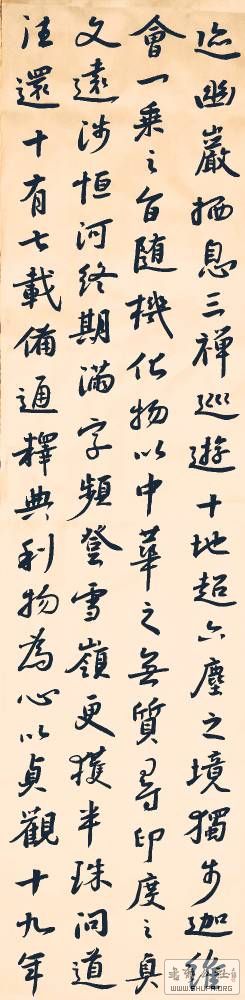 迹幽巖栖息三禪巡遊十地超六塵之境獨步迦維
會一乘之旨随機化物以中華之無質尋印度之真
文遠涉恒河終期滿字頻登雪嶺更獲半珠問道
往還十有七載備通釋典利物為心以貞觀十九年
WWW.SHUFA.ORG